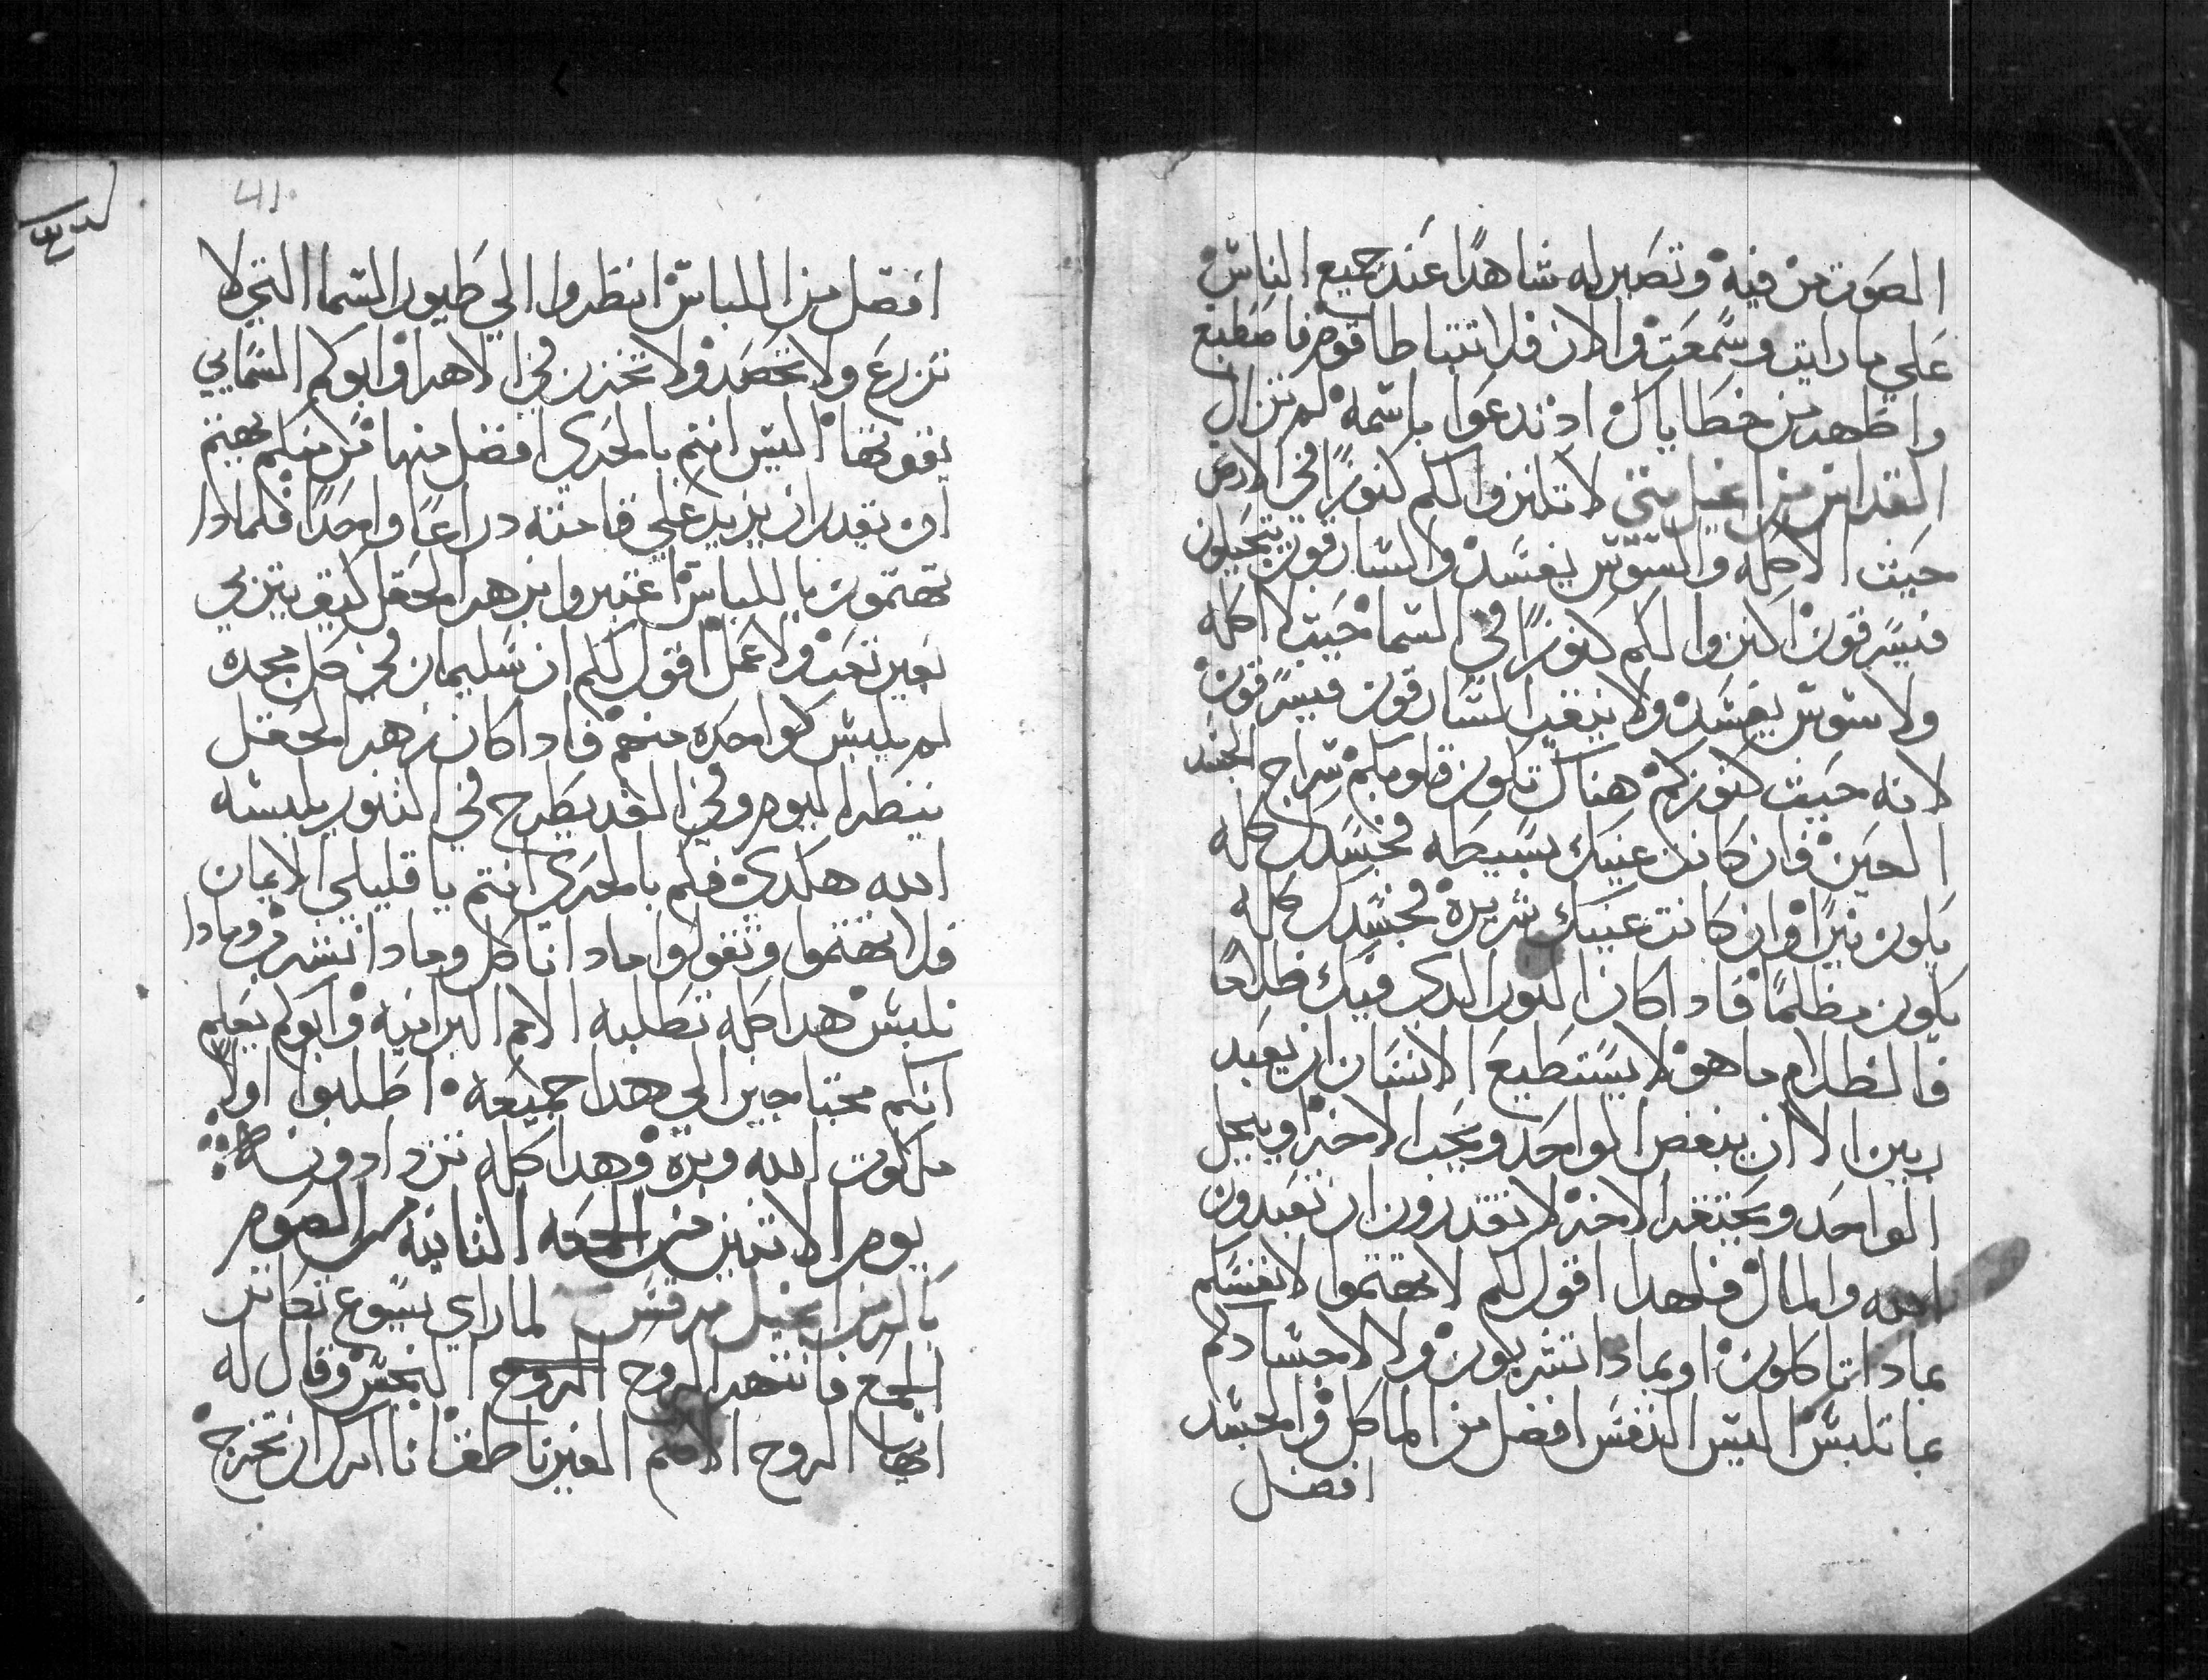 الصوت من فيه وتصير له شاهدًا عند جميع الناس
علي ما رايت وسمعت والان فلا تتباطا قوم فاصطبغ
واطهر من خطاياك اذ تدعوا باسمه لم تزال
القداس من انجيل متي لا تكنزوا لكم كنوزًا في الارض
حيث الاكله والسوس يفسد والسارقون يتحيلون
فيسرقون اكنزوا لكم كنوزًا في السما حيث لا اكله
ولا سوس يفسد ولا ينقب السارقون فيسرقون
لانه حيث كنوزكم هناك تكون قلوبكم سراج الجسد
العين فان كانت عينك بسيطه فجسدك كله
يكون نيرًا وان كانت عينك شريره فجسدك كله
يكون مظلمًا فادا كان النور الدي فيك ظلامًا
فالظلام ما هو لا يستطيع الانسان ان يعبد
ربين الا ان يبغض الواحد ويحب الاخر او يبجل
الواحد ويحتقر الاخر لا تقدرون ان تعبدون
الله والمال فلهدا اقول لكم لا تهتموا لانفسكم
بمادا تاكلون او بمادا تشربون ولا لاجسادكم
بما تلبس اليس النفس افضل من الماكل والجسد
افضل
41
افضل من اللباس انظروا الي طيور السما التي لا
تزرع ولا تحصد ولا تخزن في الاهرا وابوكم السمايي
يقوتها اليس انتم بالحري افضل منها من منكم يهتم
ان يقدر ان يزيد علي قامته دراعًا واحدًا فلمادا
تهتمون باللباس اعتبروا بزهر الحقل كيف يتربي
بغير تعب ولا عمل اقول لكم ان سليمان في كل مجده
لم يلبس كواحده منهم فادا كان زهر الحقل
ينظر اليوم وفي الغد يطرح في التنور يلبسه
الله هكدي فكم بالحري انتم يا قليلي الايمان
فلا تهتموا وتقولوا مادا ناكل ومادا نشرب ومادا
نلبس هدا كله تطلبه الامم البرانيه وابوكم يعلم
انكم محتاجين الي هدا جميعه اطلبوا اولًا
ملكوت الله وبره وهدا كله تزدادونه
يوم الاتنين من الجمعه التانيه من الصوم
باكر من انجيل مرقس لما راي يسوع تكاتر
الجمع فانتهر الروح الروح النجس وقال له
ايها الروح الاصم الغير ناطق انا امرك ان تخرج